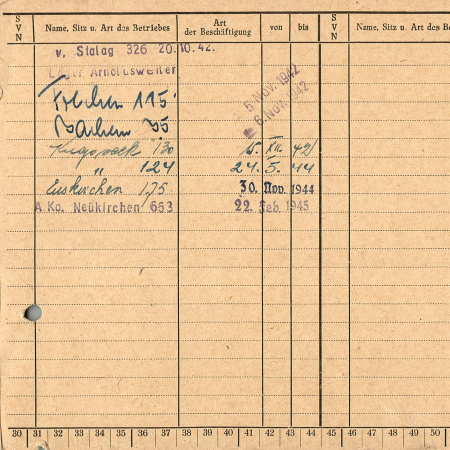 S V N Name, Sitz u. Art des Betriebes Art der Beschäftigung von bis S V N Name, Sitz u. Art des Be
v. Stalag 326 20.10.42.
Lager Arnoldsweiler 5. Nov. 1942
Frechen 115. 6. Nov. 1942
Bachem
1/30 15. XII. 42
" 124 24. 5. 44
Euskirchen 175 30. Nov. 1944
A Ko. Neukirchen 663 22. Feb. 1945
30 31 32 33 34 35 36 37 38 39 40 41 42 43 44 45 46 47 48 49 50